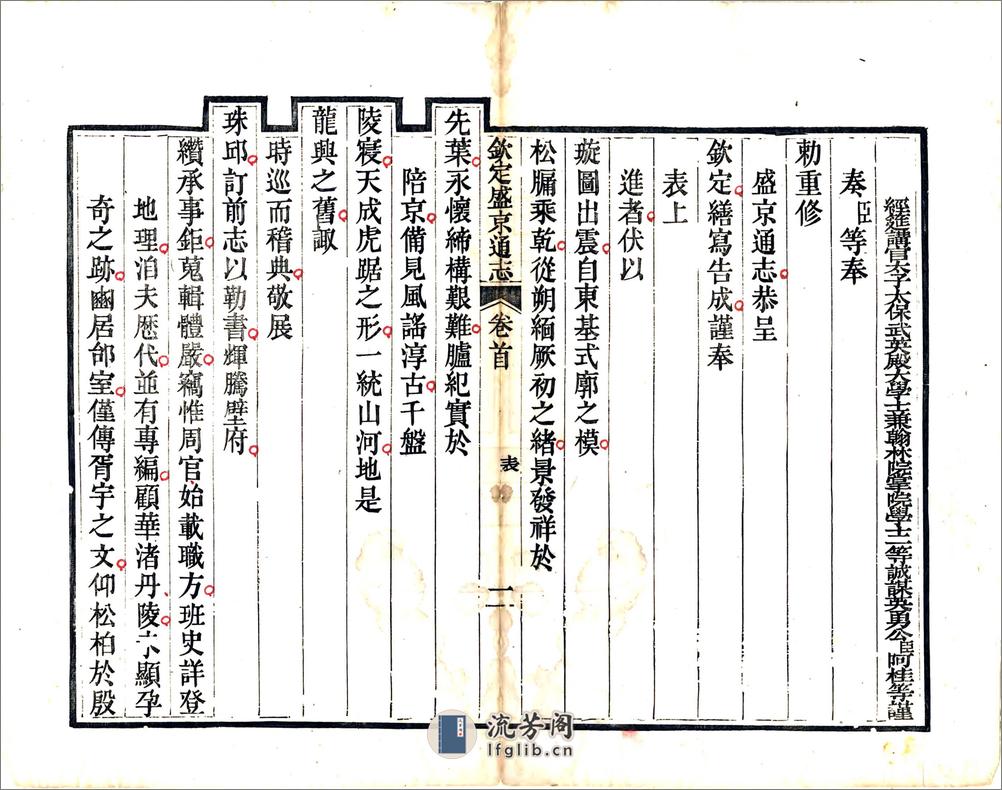 經筵講官太子太保武英殿大學士兼翰林院掌院學士一等誠謀英勇公臣阿桂等謹
奏臣等奉
勅重修
盛京通志恭呈
欽定繕寫告成謹奉
表上
進者伏以
璇圖出震自東基式廓之模
松牖乘乾從朔緬厥初之緒景發祥於
欽定盛京通志 卷首 表 一
先葉永懷締構艱難臚紀實於
陪京備見風謠淳古千盤
陵寢天成虎踞之形一統山河地是
龍興之舊諏
時巡而稽典敬展
珠邱訂前志以勒書輝騰壁府
纘承事鉅蒐輯體嚴竊惟周官始載職方班史詳登
地理洎夫歷代並有專編顧華渚丹陵顯孕
奇之跡豳居邰室僅傳胥宇之文仰松柏於殷
流芳阁
lfglib.cn